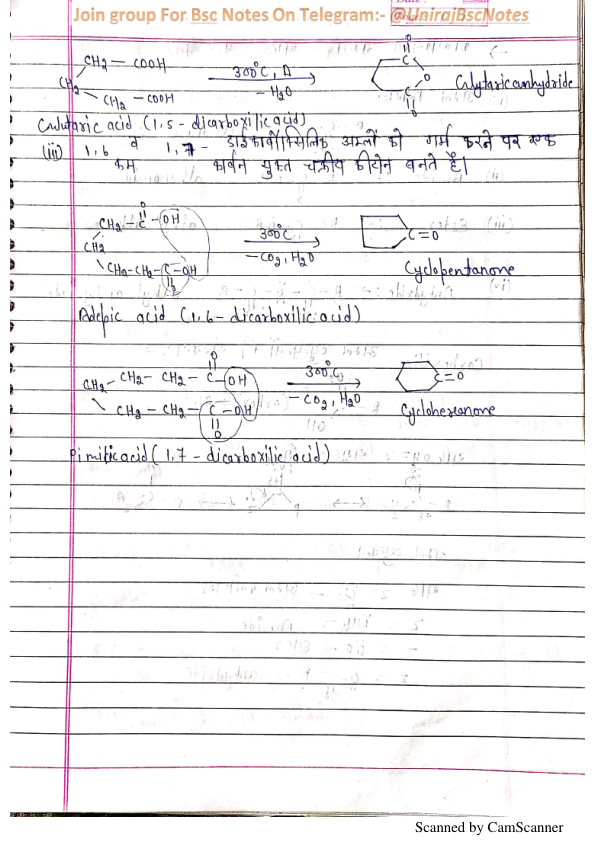 Join group For Bsc Notes On Telegram:- @UnirajBscNotes
CH₂ — COOH
CH₂
CH₂ — COOH
300°C, Δ
-H₂O
O
C
O
C
O
Glutaric anhydride
Glutaric acid (1,5 - dicarboxilic acid)
(iii) 1,6 व 1,7 - डाईकार्बोक्सिलिक अम्लों को गर्म करने पर एक
कम कार्बन युक्त चक्रीय कीटोन बनते है।
O
CH₂ - C - OH
CH₂
CH₂-CH₂-C-OH
O
300°C
-CO₂, H₂O
C=O
Cyclopentanone
Adepic acid (1,6 - dicarboxilic acid)
O
CH₂ - CH₂ - CH₂ - C - OH
CH₂ - CH₂ - C - OH
O
300°C
-CO₂, H₂O
C=O
Cyclohexanone
Pimilic acid (1,7 - dicarboxilic acid)
Scanned by CamScanner